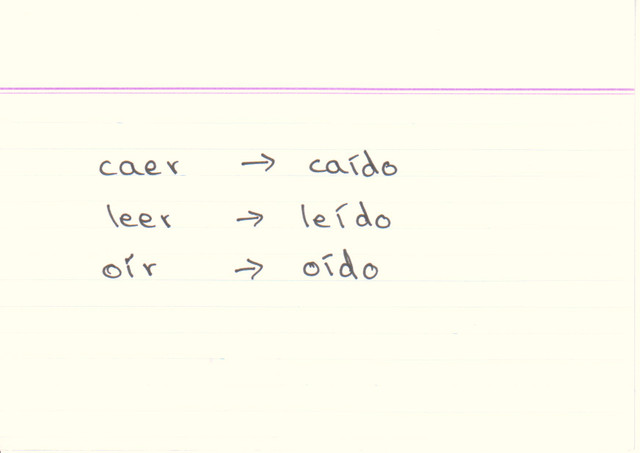 caer → caído
leer → leído
oír → oído